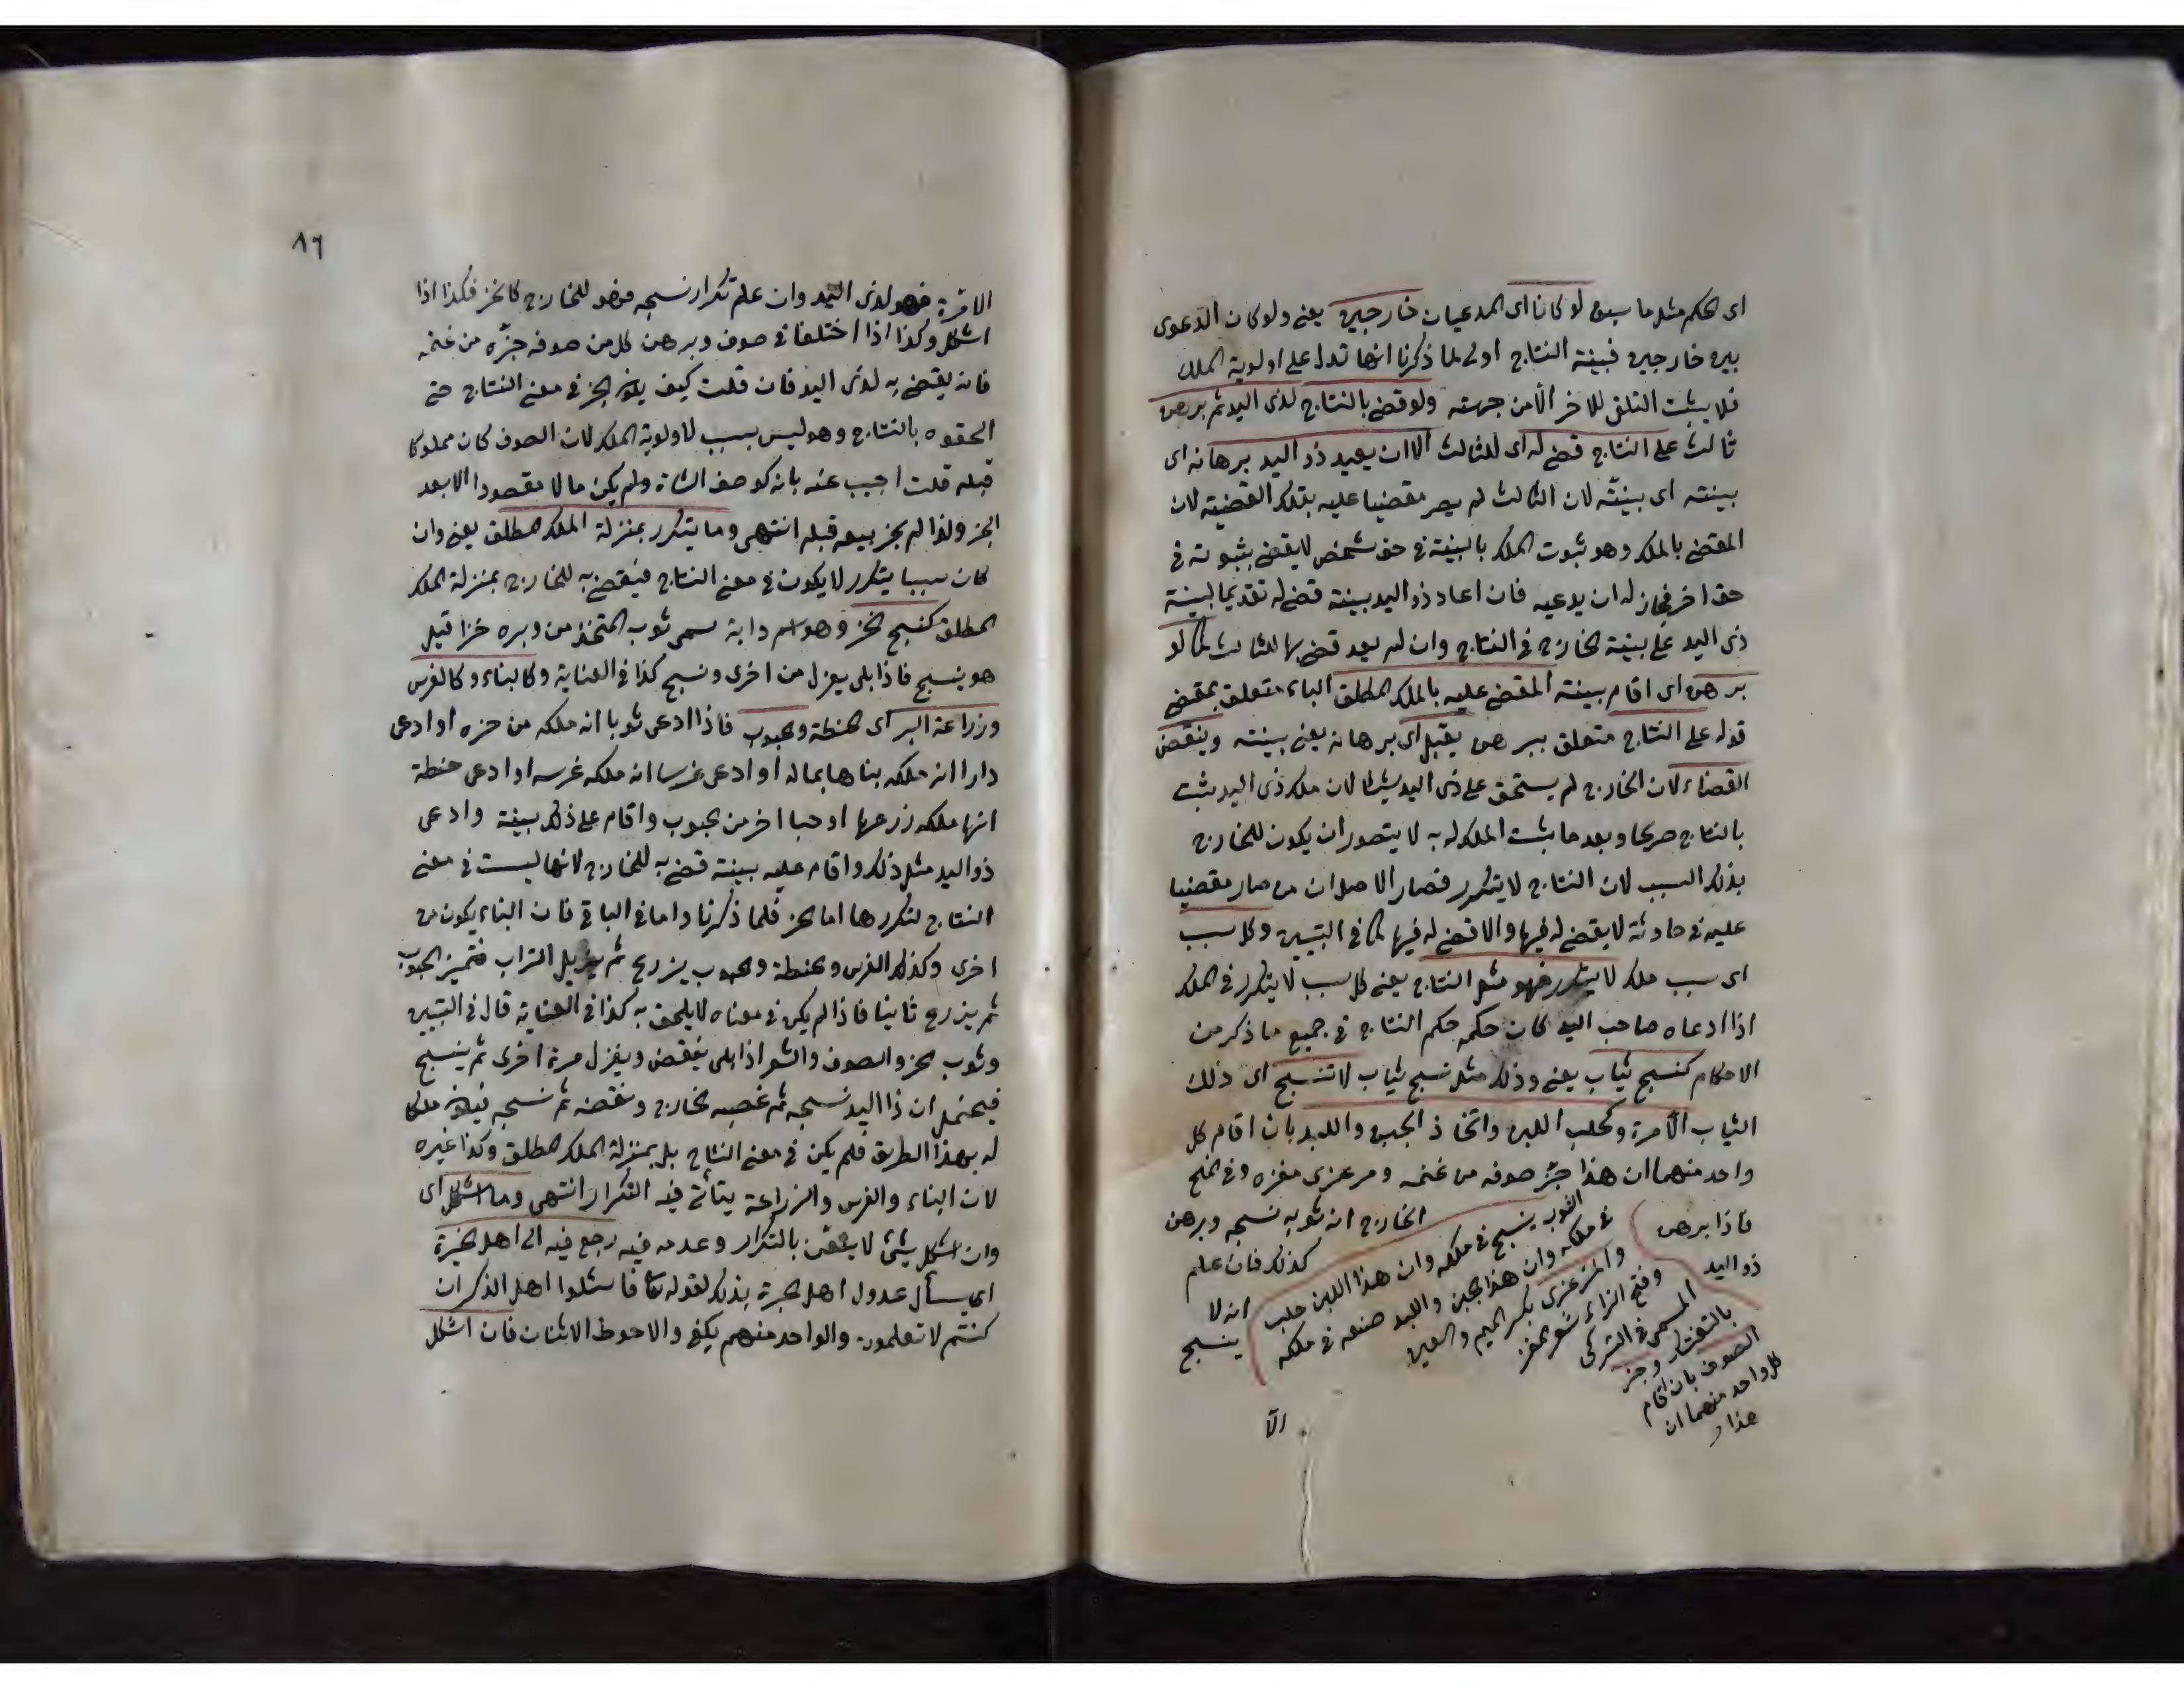 اى الحكم مثل ما سبق لو كانا اى المدعيان خارجين يعنى ولو كان الدعوى
بين خارجين فبينة النتاج اولى لما ذكرنا انها تدل على اولوية الملك
فلا يثبت التلقى للاخر الا من جهته ولو قضى بالنتاج لذى اليد ثم برهن
ثالث على النتاج قضى له اى للثالث الا ان يعيد ذو اليد برهانه اى
بينته اى بينته لان الثالث لم يصر مقضيا عليه بتلك القضية لان
المقضى بالملك وهو ثبوت الملك بالبينة فى حق شخص لا يقضى بثبوته فى
حق اخر فجاز له ان يدعيه فان اعاد ذو اليد بينته قضى له تقديما لبينة
ذى اليد على بينة الخارج فى النتاج وان لم يعد قضى بها للثالث كما لو
برهن اى اقام بينته المقضى عليه بالملك المطلق الباء متعلق بمقضى
قوله على النتاج متعلق ببرهن يقبل اى برهانه يعنى بينته وينقض
القضاء لان الخارج لم يستحق على ذى اليد شيئا لان ملك ذى اليد يثبت
بالنتاج صريحا وبعد ما يثبت الملك له به لا يتصور ان يكون للخارج
بذلك السبب لان النتاج لا يتكرر فصار الاصل ان من صار مقضيا
عليه فى حادثة لا يقضى له فيها والا قضى له فيها كما فى التبيين وكل سبب
اى سبب ملك لا يتكرر فهو مثل النتاج يعنى كل سبب لا يتكرر فى الملك
اذا ادعاه صاحب اليد كان حكمه حكم النتاج فى جميع ما ذكر من
الاحكام كنسج ثياب يعنى وذلك مثل نسج ثياب لا تنسج اى ذلك
الثياب الا مرة وكحلب اللبن واتخاذ الجبن واللبد بان اقام كل
واحد منهما ان هذا جز صوفه من غنمه ومرعزى معزه وفى المنح
فاذا برهن الخارج انه ثوبه نسجه وبرهن
ذو اليد كذلك فان علم
انه لا
ينسج
الثوب ينسج فى ملكه وان هذا اللبن حلب
فى ملكه وان هذا الجبن واللبد صنعه فى ملكه
والمرعزى بكسر الميم والعين
وفتح الزاء شعر المعز
المسمى فى التركى
بالتفتيك وجز
الصوف بان اقام
كل واحد منهما ان
هذا
الا
٨٦
الا مرة فهو لذى اليد وان علم تكرار نسجه فهو للخارج كالخز فكذا اذا
اشكل وكذا اذا اختلفا فى صوف وبرهن كل من صوفه جزه من غنمه
فانه يقضى به لذى اليد فان قلت كيف يكون الجز فى معنى النتاج حتى
الحقوه بالنتاج وهو ليس بسبب لاولوية الملك لان الصوف كان مملوكا
قبله قلت اجيب عنه بانه كوصف الشاة ولم يكن مالا مقصودا الا بعد
الجز ولذا لم يجز بيعه قبله انتهى وما يتكرر بمنزلة الملك المطلق يعنى وان
كان سببا يتكرر لا يكون فى معنى النتاج فيقضى به للخارج بمنزلة الملك
المطلق كنسج الخز وهو اسم دابة سمى ثوب المتخذ من وبره خزا قيل
هو ينسج فاذا بلى يغزل من اخرى ونسج كذا فى العناية وكالبناء وكالغرس
وزراعة البر اى الحنطة والحبوب فاذا ادعى ثوبا انه ملكه من خزه او ادعى
دارا انه ملكه بناها بماله او ادعى غرسا انه ملكه غرسه او ادعى حنطة
انها ملكه زرعها او حبا اخر من الحبوب واقام على ذلك بينة وادعى
ذو اليد مثل ذلك واقام عليه بينة قضى به للخارج لانها ليست فى معنى
النتاج لتكررها اما الخز فلما ذكرنا واما فى الباقى فان البناء يكون من
اخرى وكذلك الغرس والحنطة والحبوب يزرع ثم يغربل التراب فتميز الحبوب
ثم يزرع ثانيا فاذا لم يكن فى معناه لا يلحق به كذا فى العناية قال فى التبيين
وثوب الخز والصوف والشعر اذا بلى ينقض ويغزل مرة اخرى ثم ينسج
فيحتمل ان ذا اليد نسجه ثم غصبه الخارج ونقضه ثم نسجه فيكون ملكا
له بهذا الطريق فلم يكن فى معنى النتاج بل بمنزلة الملك المطلق وكذا غيره
لان البناء والغرس والزراعة يتأتى فيه التكرار انتهى وما اشكل اى
وان اشكل شئ لا يتيقن بالتكرار وعدمه فيه رجع فيه الى اهل الخبرة
اى يسأل عدول اهل الخبرة بذلك لقوله تعا فاسئلوا اهل الذكر ان
كنتم لا تعلمون والواحد منهم يكفى والاحوط الاثنان فان اشكل